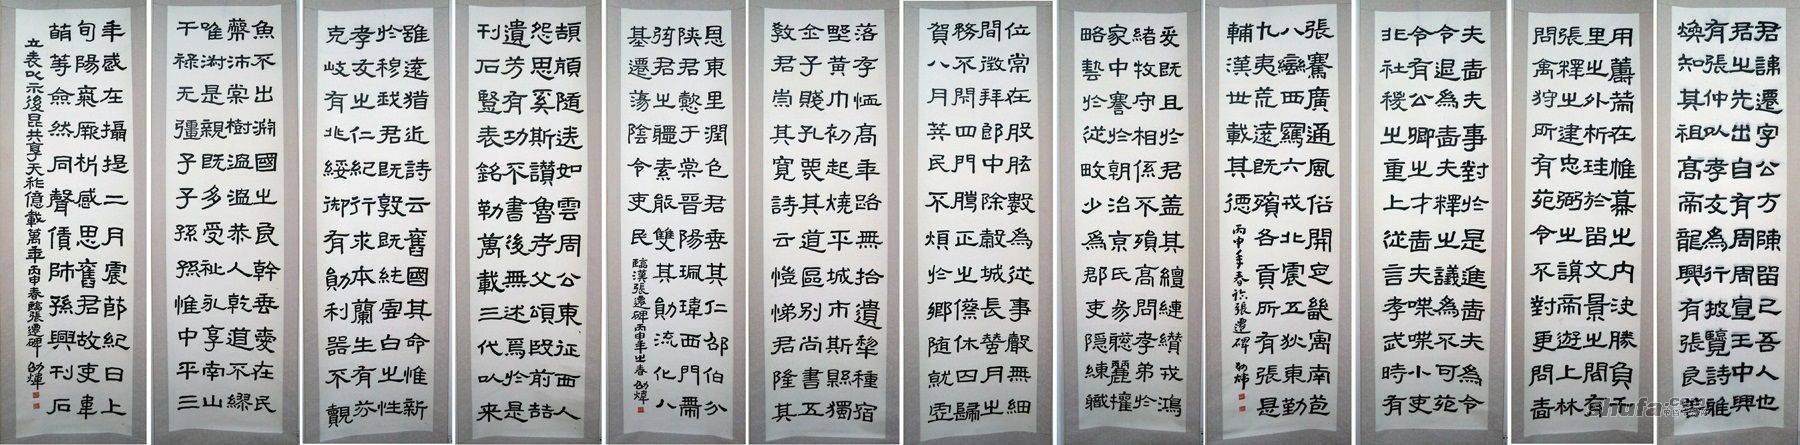 君諱遷字公方陳留己吾人也
君之先出自有周周宣王中興
有張仲以孝友為行披覽詩雅
煥知其祖高帝龍興有張良善
用籌策在帷幕之内決勝負千
里之外析珪於留文景之間有
張釋之建忠弼之謨帝遊上林
問禽狩所有苑令不對更問嗇
夫嗇夫事對於是進嗇夫為令
令退為嗇夫釋之議為不可苑
令有公卿之才嗇夫喋喋小吏
北社稷之重上從言孝武時有
張騫廣通風俗開定畿寓南苞
八蠻西羈六戎北震五狄東勤
九夷荒遠既殯各貢所有張是
輔漢世載其德 丙申年春於張遷碑
爰既且於君蓋其繵縺纘戎鴻
緒牧守相係不殞高問孝弟於
家中謇於朝治京氏易聰麗權
略藝於從畋少為郡吏隱練職
位常在股肱數為從事聲無細
聞徵拜郎中除榖城長蠶月之
務不閉四門腊正之僚休囚歸
賀八月筭民不煩於鄉隨就虛
落存恤高年路無拾遺犁種宿
野黃巾初起燒平城市斯縣獨
全子賤孔蔑其道區別尚書五
教君崇其寬詩云愷悌君隆其
恩東里潤色君垂其仁邵伯分
陝君懿于棠晉陽珮瑋西門帶
弦君之體素能雙其勛流化八
基遷蕩陰令吏民 臨漢張遷碑丙申年之春
頡頏隨送如雲周公東征西人
怨思奚斯讚魯考父頌殷前喆
遺芳有功不書後無述焉於是
刊石竪表銘勒萬載三代以來
雖遠猶近詩云舊國其命惟新
於穆我君既敦既純雪白之性
孝友之仁紀行求本蘭生有芬
克岐有兆綏御有勛利器不覿
魚不出淵國之良幹垂愛在民
蔽沛棠樹溫溫恭人乾道不繆
唯淑是親既多受祉永享南山
干祿无疆子子孫孫惟中平三
年歲在攝提二月震節紀日上
旬陽氣厥析感思舊君故吏韋
萌等僉然同聲賃師孫興刊石
立表以示後昆共享天祚億載萬年 丙申春臨張遷碑